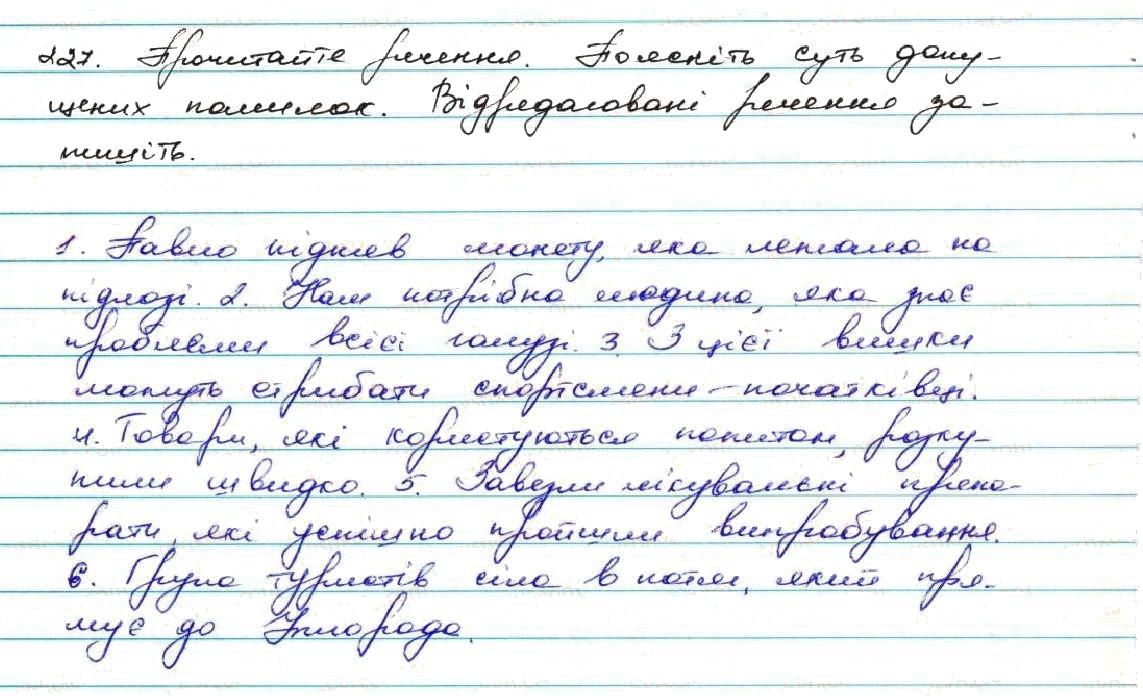 227. Прочитайте речення. Поясніть суть допу-
щених помилок. Відредаговані речення за-
пишіть.
1. Павло підняв монету, яка лежала на
підлозі. 2. Нам потрібна людина, яка знає
проблеми всієї галузі. 3. З цієї вишки
можуть стрибати спортсмени-початківці.
4. Товари, які користуються попитом, розку-
пили швидко. 5. Завезли лікувальні препа-
рати, які успішно пройшли випробування.
6. Група туристів сіла в потяг, який пря-
мує до Ужгорода.